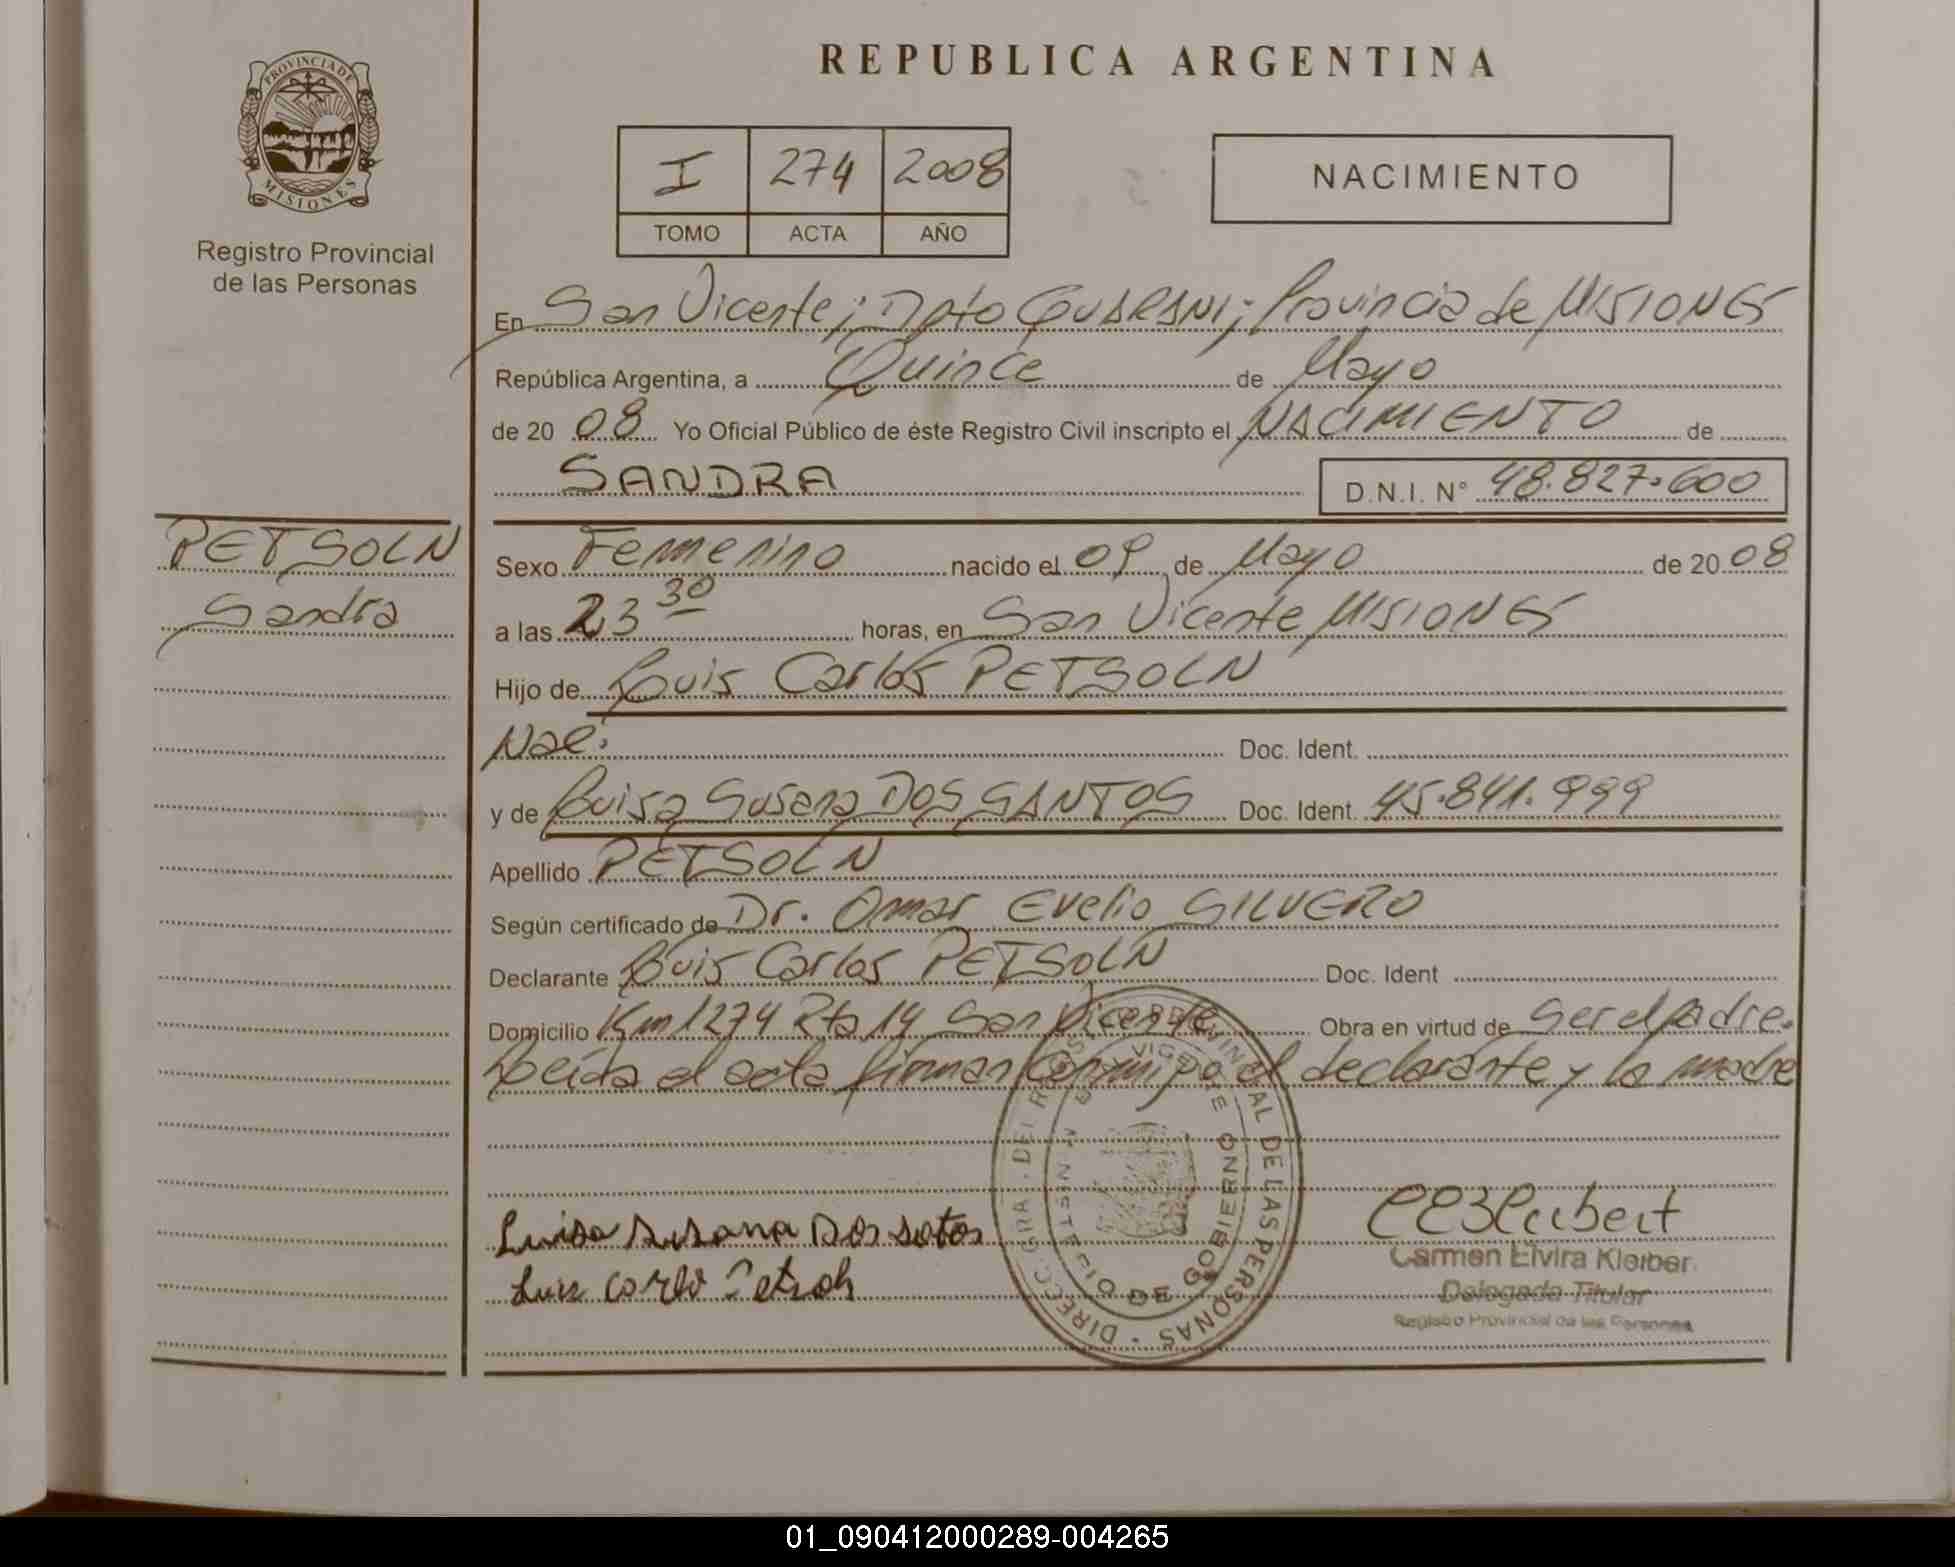 PROVINCIA DE
MISIONES
Registro Provincial
de las Personas
REPUBLICA ARGENTINA
I 274 2008
TOMO ACTA AÑO
NACIMIENTO
En San Vicente; Dpto GUARANI; Provincia de MISIONES
República Argentina, a Quince de Mayo
de 20 08 Yo Oficial Público de éste Registro Civil inscripto el NACIMIENTO de
SANDRA D.N.I. N° 48.827.600
PETSOLN
Sandra
Sexo Femenino nacido el 09 de Mayo de 20 08
a las 23 30 horas, en San Vicente MISIONES
Hijo de Luis Carlos PETSOLN
Nac. Doc. Ident.
y de Luisa Susana DOS SANTOS Doc. Ident. 45.841.999
Apellido PETSOLN
Según certificado de Dr. Omar Evelio SILVERO
Declarante Luis Carlos PETSOLN Doc. Ident
Domicilio Km 1274 Rta 14 San Vicente Obra en virtud de Ser el padre.
Leída el acta firman conmigo el declarante y la madre
DIRECC. GRA. DEL REG. PROVINCIAL DE LAS PERSONAS
MINISTERIO DE GOBIERNO
Luisa Susana Dos Satos
Luis Carlo Petsoln
Carmen Elvira Kleiber
Delegada Titular
Registro Provincial de las Personas
01_090412000289-004265